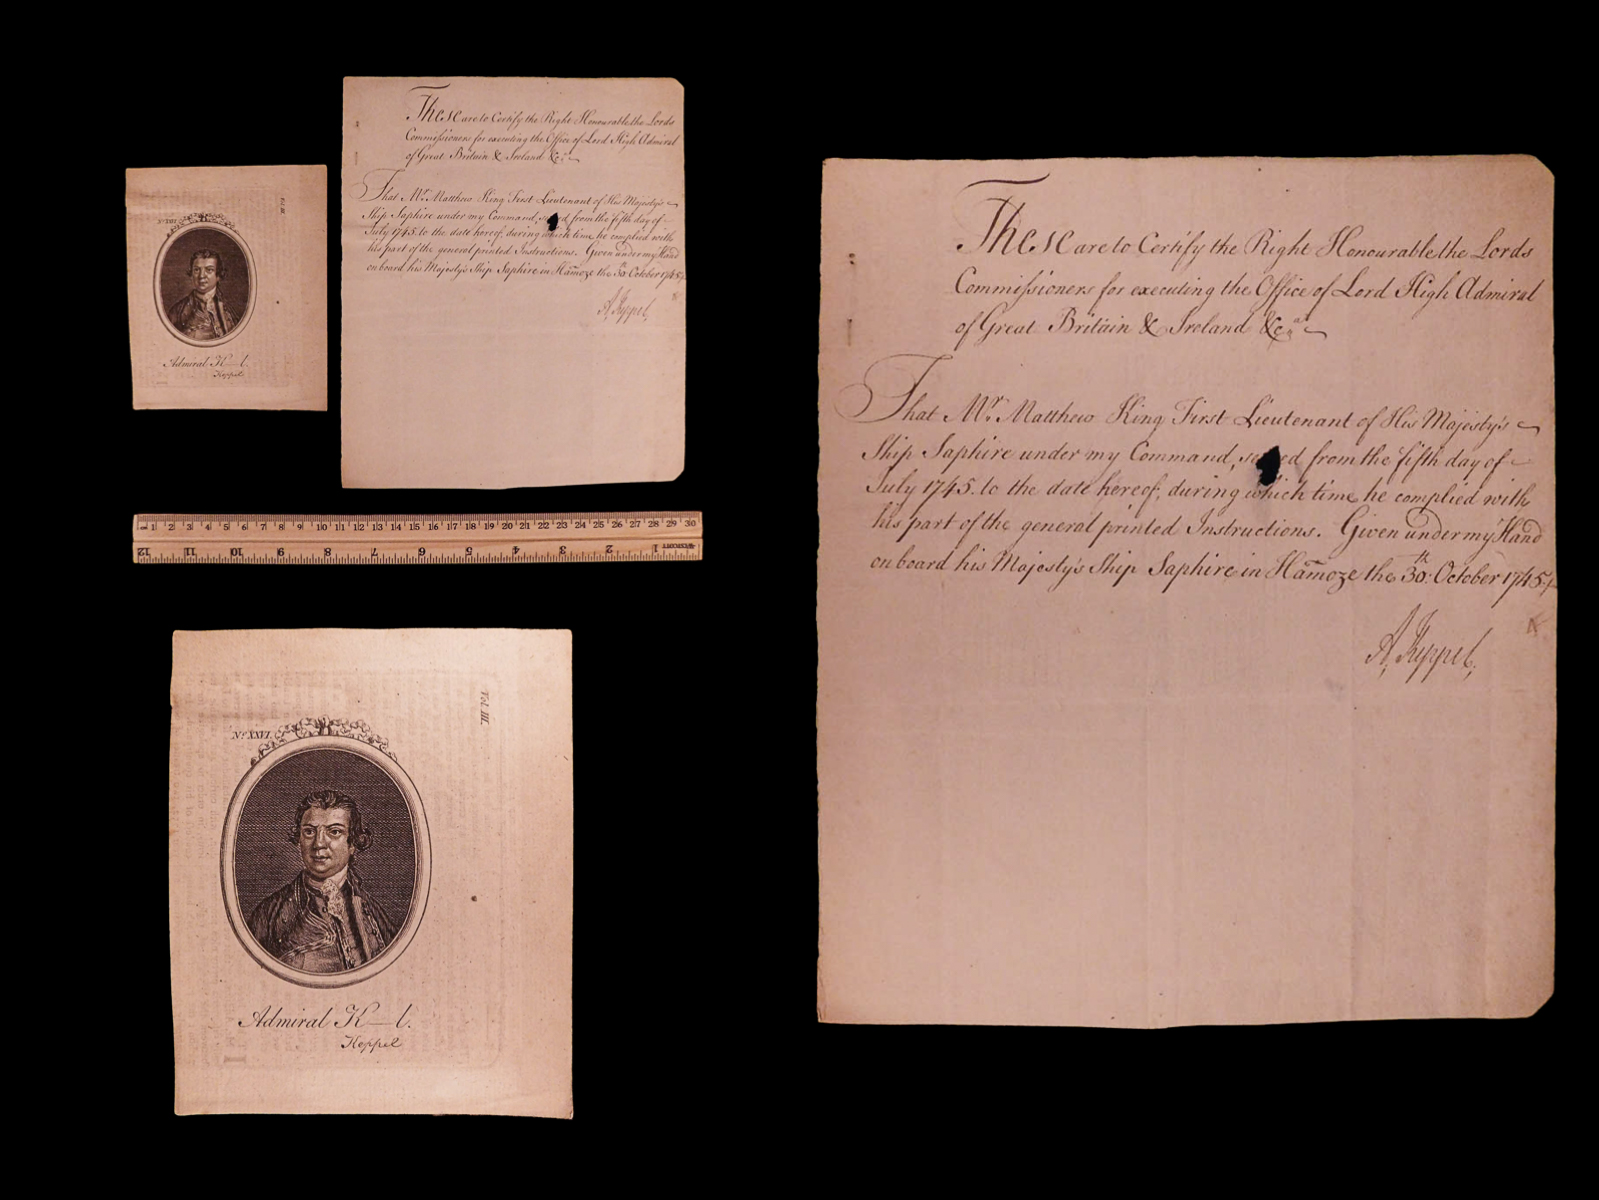 These are to Certify the Right Honourable the Lords
Commissioners for executing the Office of Lord High Admiral
of Great Britain & Ireland &c.a
That Mr. Matthew King First Lieutenant of His Majesty's
Ship Saphire under my Command, from the fifth day of
July 1745. to the date hereof; during which time he complied with
his part of the general printed Instructions. Given under my Hand
on board his Majesty's Ship Saphire in Hamoze the 30th October 1745.
A. Keppel,
No. XXVI.
Vol. III.
Admiral K—l.
Keppel
1 2 3 4 5 6 7 8 9 10 11 12 13 14 15 16 17 18 19 20 21 22 23 24 25 26 27 28 29 30
12 11 10 9 8 7 6 5 4 3 2 1 WESTCOTT
No. XXVI.
Vol. III.
Admiral K—l.
Keppel
These are to Certify the Right Honourable the Lords
Commissioners for executing the Office of Lord High Admiral
of Great Britain & Ireland &c.a
That Mr. Matthew King First Lieutenant of His Majesty's
Ship Saphire under my Command, from the fifth day of
July 1745. to the date hereof; during which time he complied with
his part of the general printed Instructions. Given under my Hand
on board his Majesty's Ship Saphire in Hamoze the 30th October 1745.
A. Keppel,